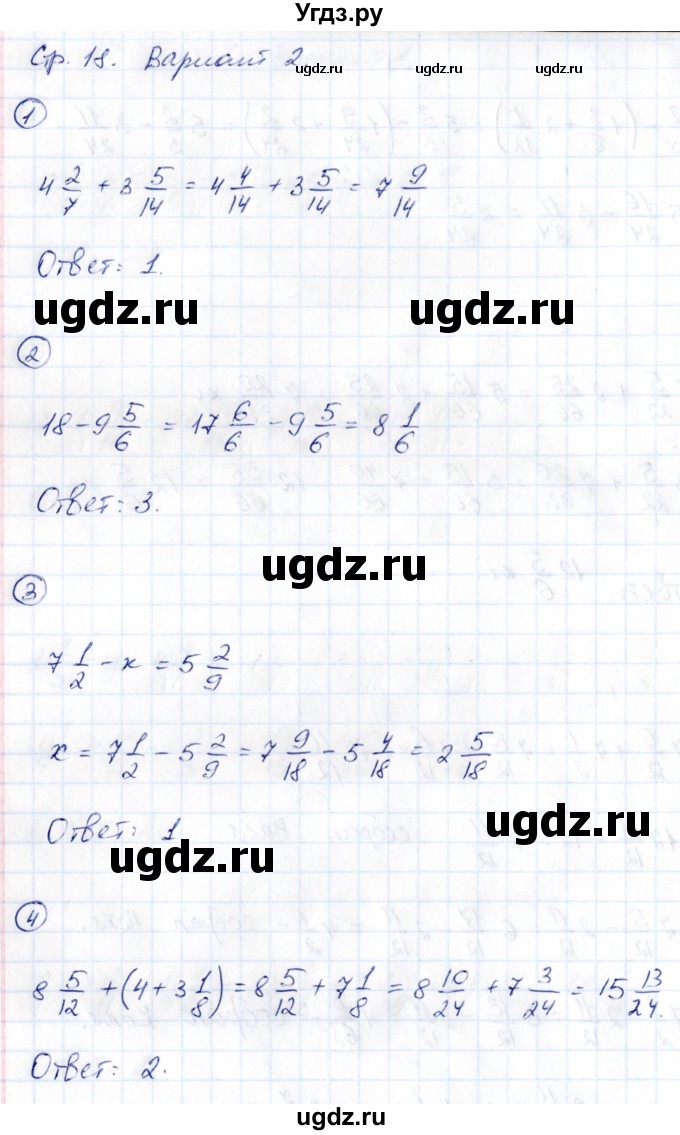 Угдз.ру
Стр. 18. Вариант 2
ugdz.ru ugdz.ru ugdz.ru
1
4 2/7 + 3 5/14 = 4 4/14 + 3 5/14 = 7 9/14
Ответ: 1.
ugdz.ru ugdz.ru
2
18 - 9 5/6 = 17 6/6 - 9 5/6 = 8 1/6
Ответ: 3.
ugdz.ru
3
7 1/2 - x = 5 2/9
x = 7 1/2 - 5 2/9 = 7 9/18 - 5 4/18 = 2 5/18
ugdz.ru
Ответ: 1
ugdz.ru
4
8 5/12 + (4 + 3 1/8) = 8 5/12 + 7 1/8 = 8 10/24 + 7 3/24 = 15 13/24.
Ответ: 2.
ugdz.ru
ugdz.ru